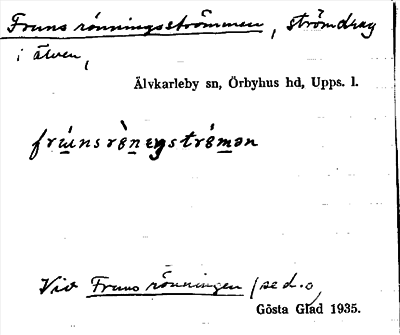 Fruns rönningsströmmen, strömdrag
i älven,
Älvkarleby sn, Örbyhus hd, Upps. l.
Vid Fruns rönningen (se d. o.
Gösta Glad 1935.